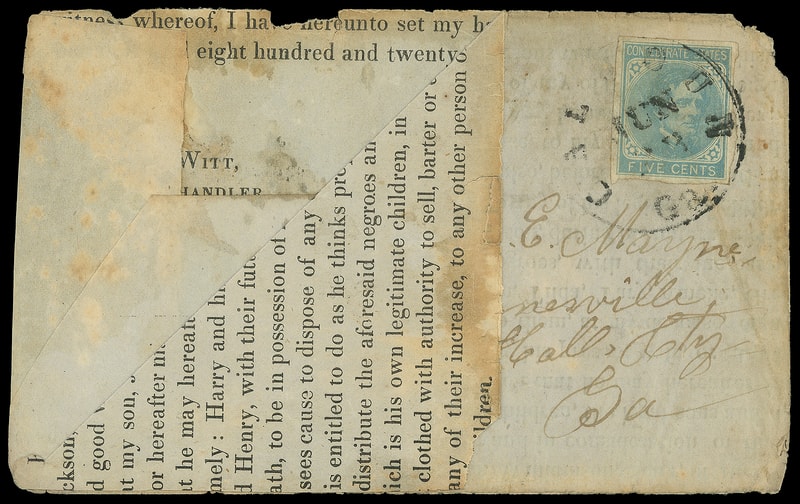 itness whereof, I have hereunto set my ha
eight hundred and twenty
WITT,
HANDLER
ckson,
d good
t my son,
or hereafter ma
t he may hereaft
mely: Harry and hi
d Henry, with their futu
ath, to be in possession of
sees cause to dispose of any
is entitled to do as he thinks pro
distribute the aforesaid negroes an
ich is his own legitimate children, in
clothed with authority to sell, barter or
any of their increase, to any other person o
ildren.
CONFEDERATE STATES
FIVE CENTS
JUN
E. Mayne
nesville
Hall, Cty
Ga